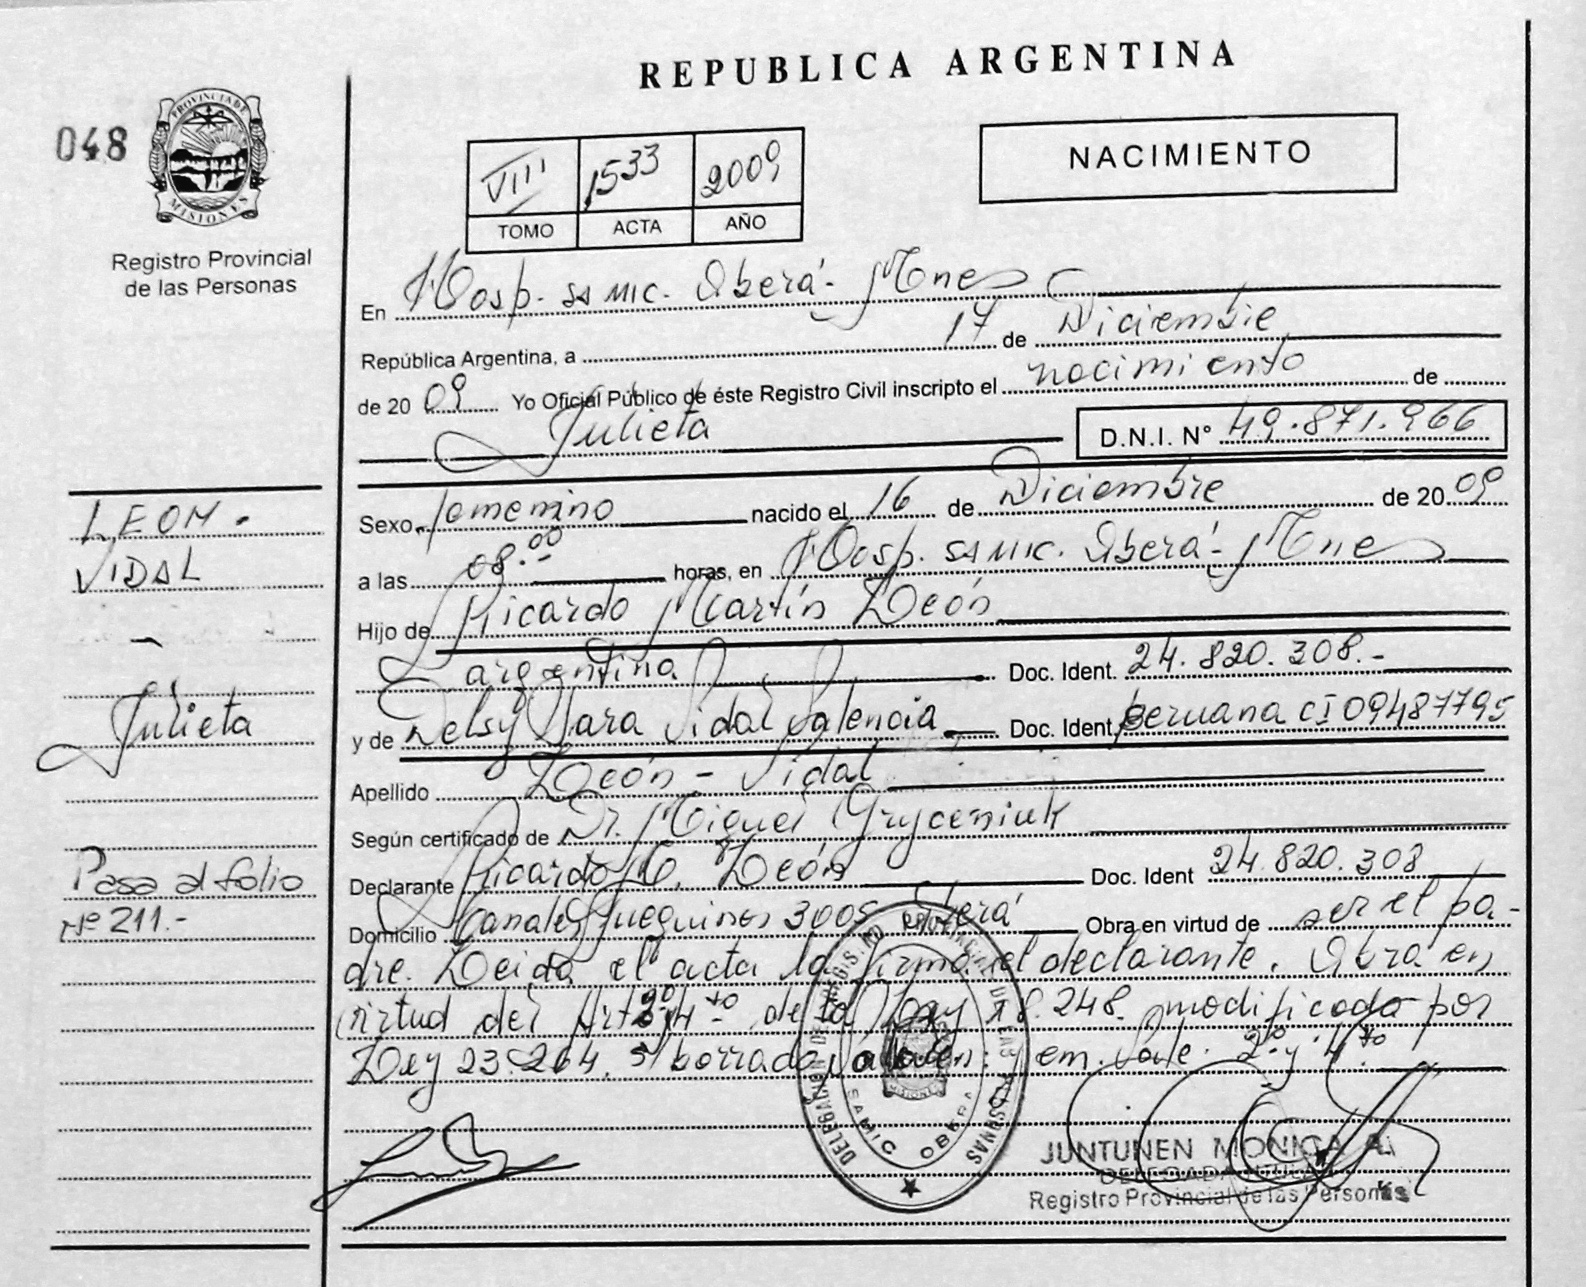 REPUBLICA ARGENTINA
048
PROVINCIA DE
MISIONES
Registro Provincial
de las Personas
VIII 1533 2009
TOMO ACTA AÑO
NACIMIENTO
En Hosp. SAMIC. Oberá - Mnes
República Argentina, a 17 de Diciembre
de 2009 Yo Oficial Público de éste Registro Civil inscripto el nacimiento de
Julieta D.N.I. N° 49.871.966
Sexo femenino nacido el 16 de Diciembre de 2009
a las 08:00 horas, en Hosp. SAMIC. Oberá - Mnes
Hijo de Ricardo Martín León
argentina Doc. Ident. 24.820.308.-
y de Delsy Sara Vidal Valencia Doc. Ident. peruana CI 09487795
Apellido León - Vidal
Según certificado de Dr. Miguel Gryceniuk
Declarante Ricardo M. León Doc. Ident 24.820.308
Domicilio 3005 Oberá Obra en virtud de ser el pa-
dre. Leida el acta la firma el declarante. Obra en
virtud del Art 2º y 4to de la Ley 18.248 modificada por
Ley 23.264. s/ borrado em. Vale. 2º y 4to
LEON -
VIDAL
Julieta
Pasa al folio
Nº 211.-
DELEGACION DEL REGISTRO PROVINCIAL DE LAS PERSONAS
MISIONES
SAMIC OBERA
JUNTUNEN MONICA A.
DELEGADA TITULAR
Registro Provincial de las Personas